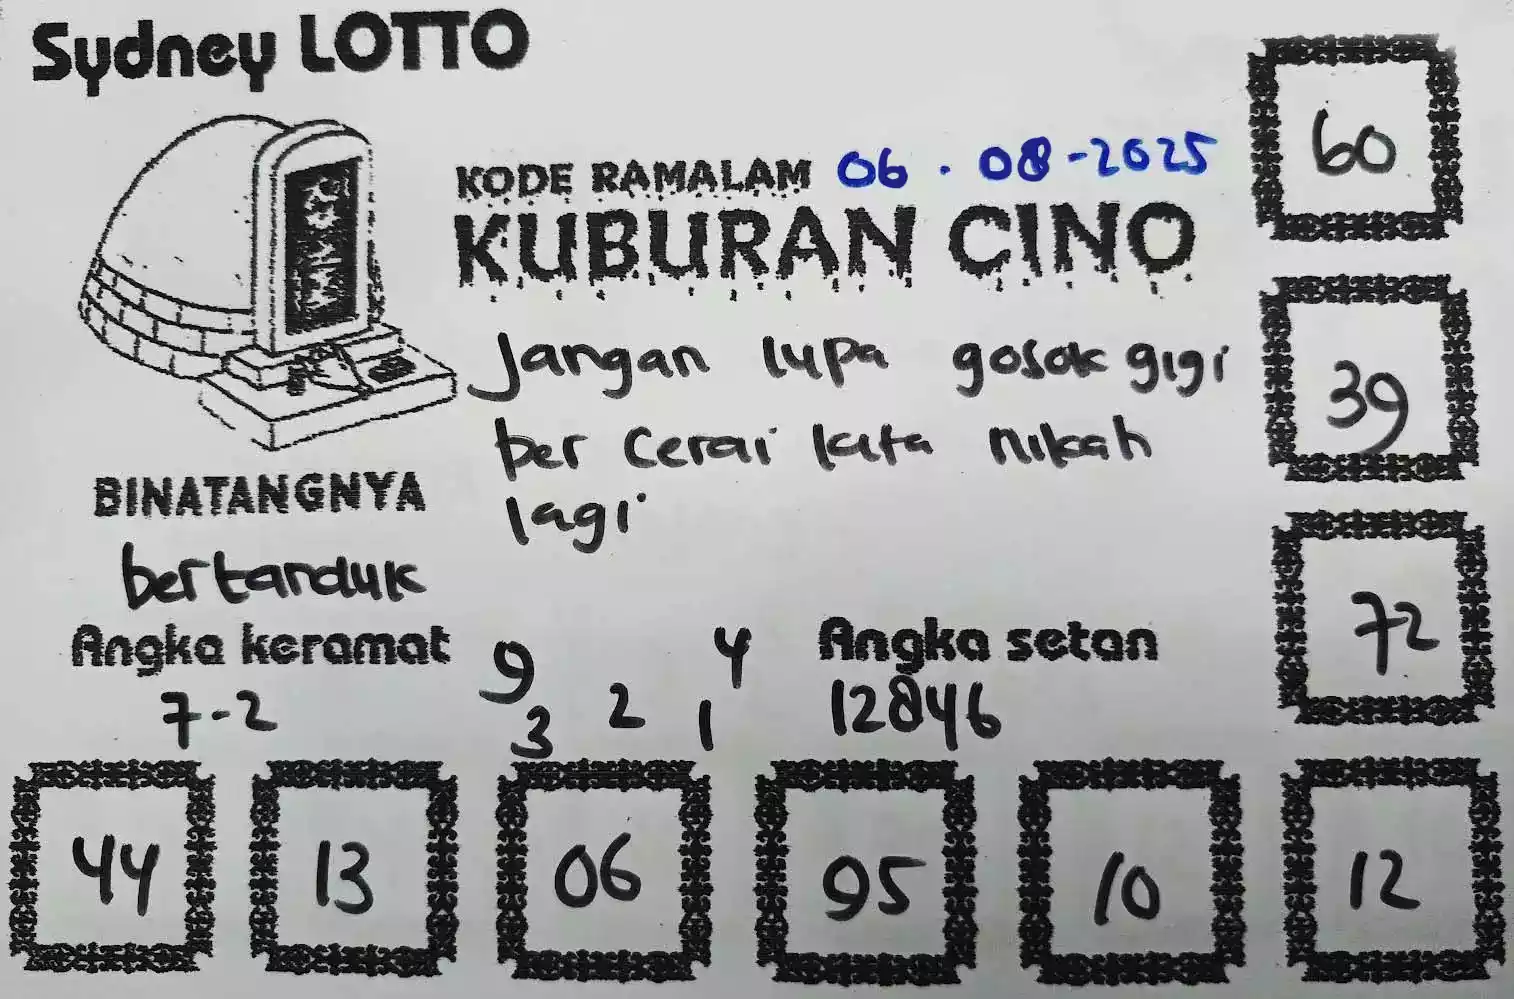 Sydney LOTTO
KODE RAMALAM 06 . 08 - 2025
KUBURAN CINO
Jangan lupa gosok gigi
ber cerai kita nikah
lagi
BINATANGNYA
bertanduk
Angka keramat
7-2
9 4
3 2 1
Angka setan
12846
60
39
72
44 13 06 95 10 12